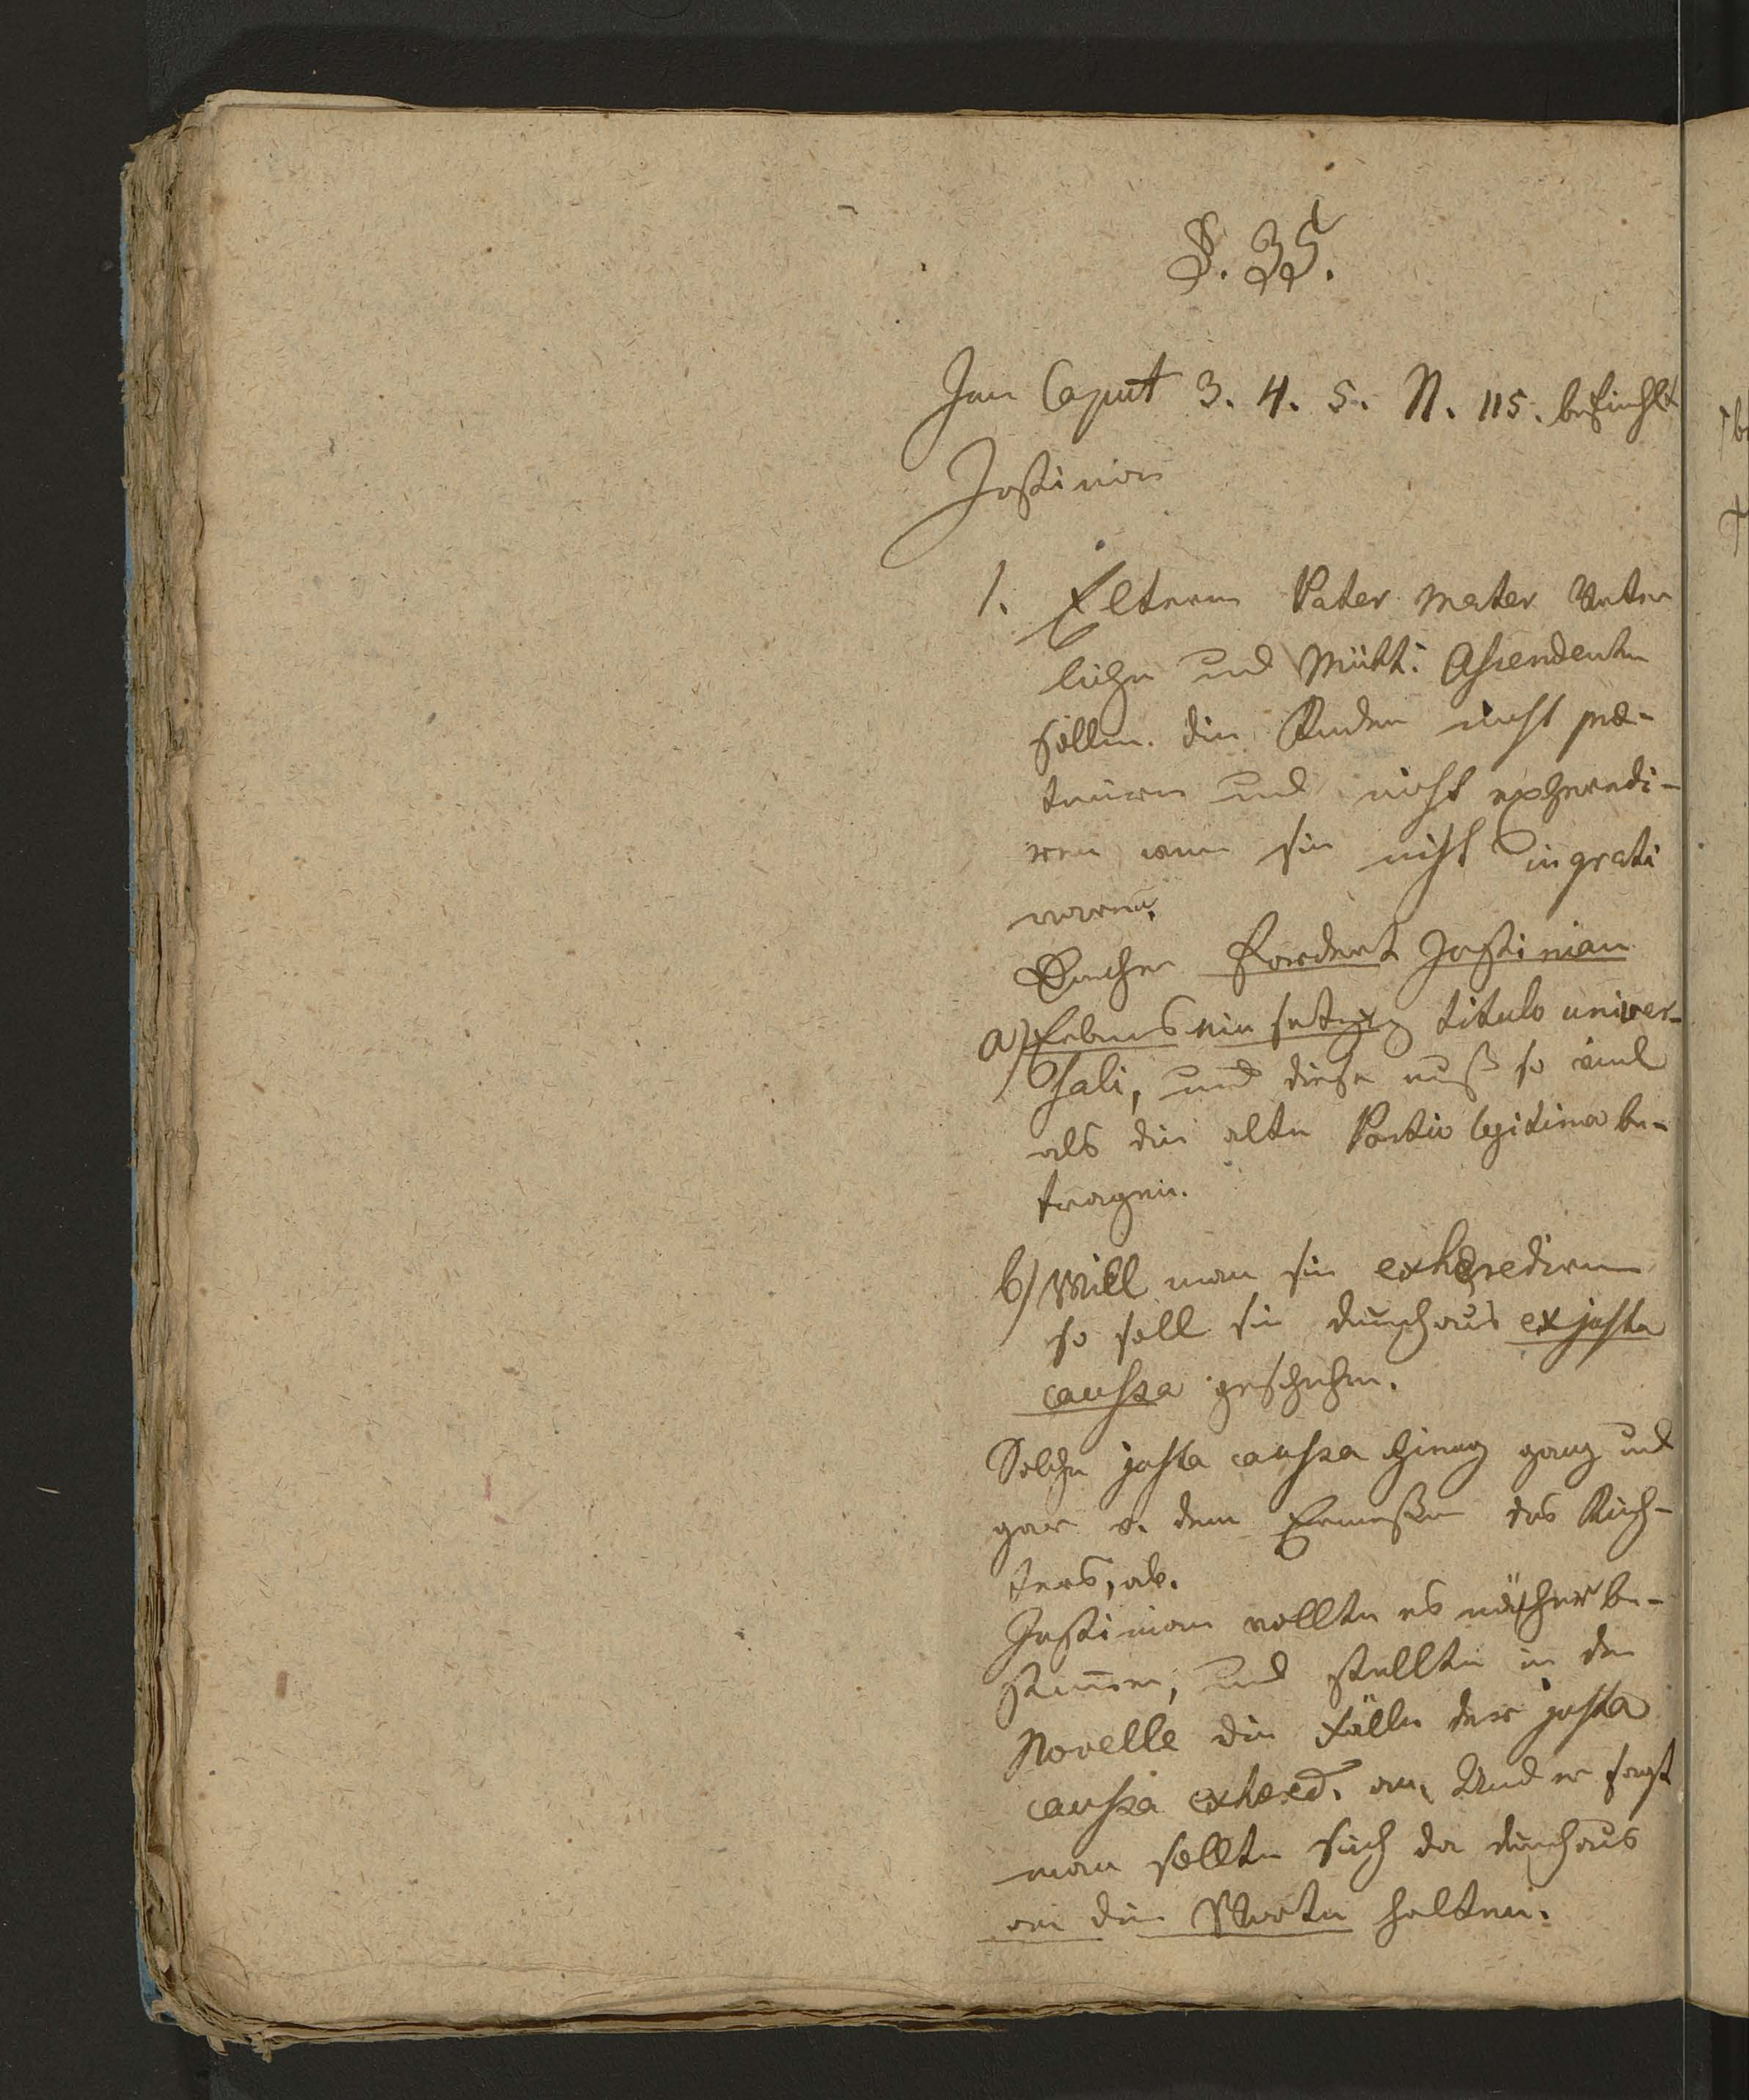 §. 35.
Im Caput 3. 4. 5. N. 115. befiehlt
Justinian
1. Eltern Pater Mater Väter
liche und Mütt: Ascendenten
sollen die Kinder nicht præ-
teriren und nicht exheredi-
ren wenn sie nicht ingrati
waren.
Daher fordert Justinian
a) Erbenseinsetzung titulo univer-
sali, und diese muß so viel
als die alte Portio legitima be-
tragen.
b) Will man sie exherediren
so soll sie durchaus ex justa
caussa geschehen.
Solche justa caussa hieng ganz und
gar v. dem Ermeßen des Rich-
ters, ab.
Justinian wollte es näher be-
stimmen, und stellte in der
Novelle die Fälle der justa
caussa exhered. an, Und er sagt
man sollte sich da durchaus
an die Worte halten.